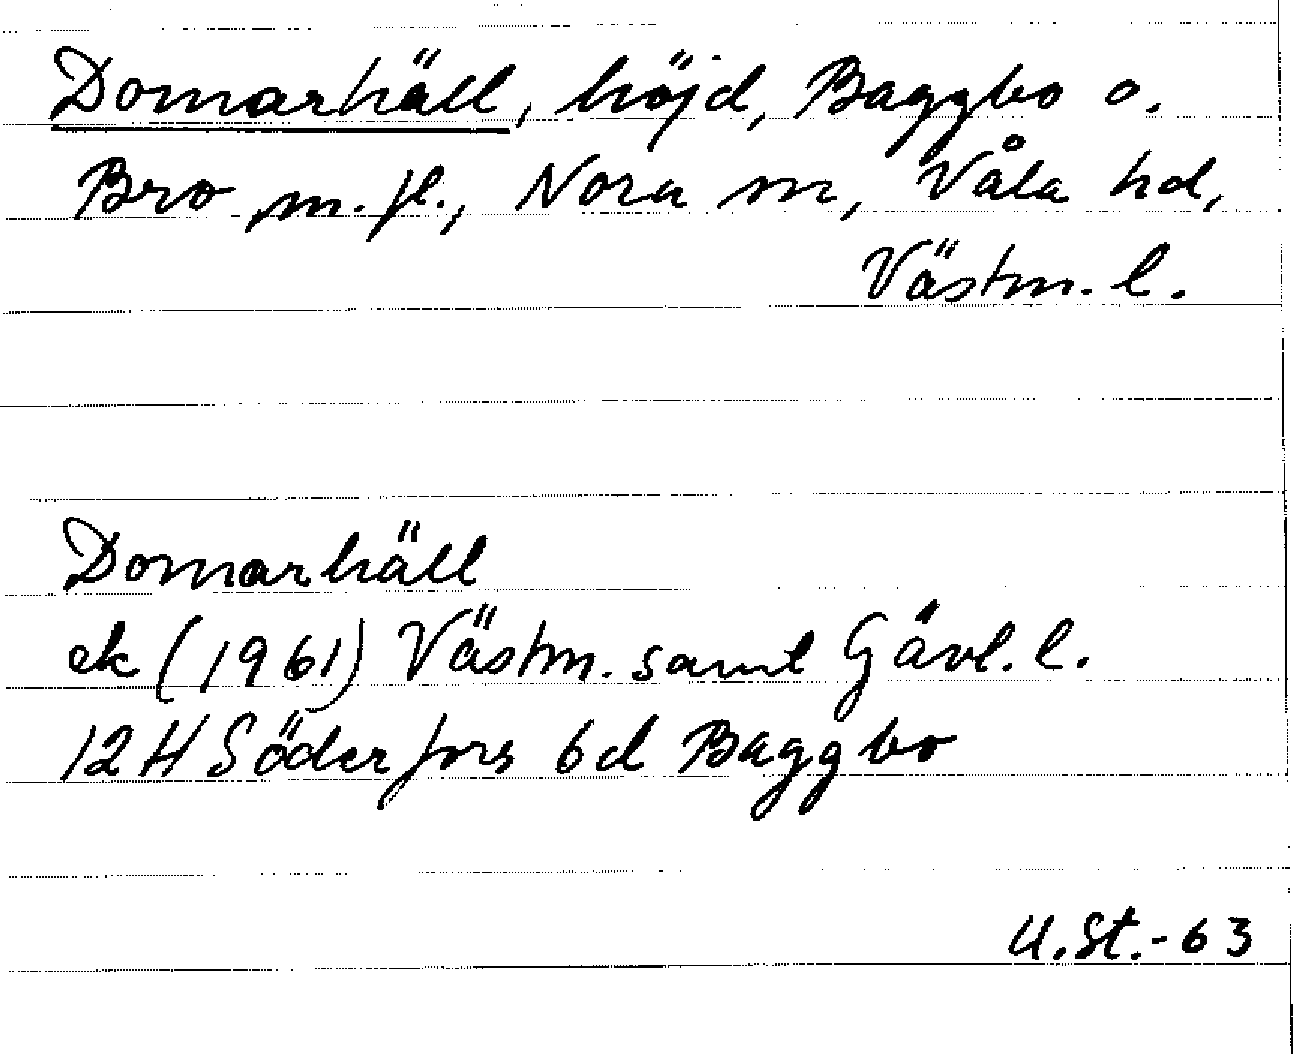 Domarhäll, höjd, Baggbo o.
Bro m.fl., Nora sn, Våla hd,
Västm. l.
Domarhäll
ek (1961) Västm. samt Gävl. l.
12H Söderfors 6d Baggbo
U.St.-63